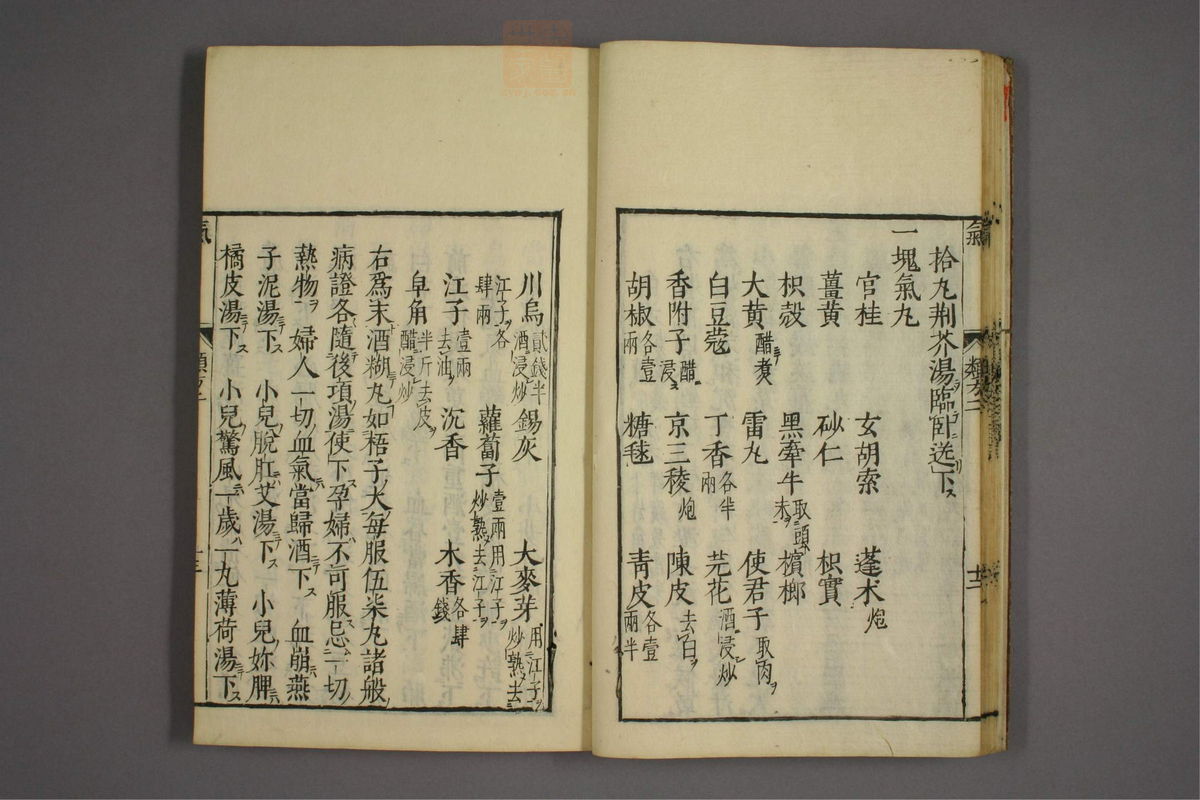 氣
拾丸荆芥湯臨卧送下
一塊氣丸
官桂 玄胡索 蓬朮炮
薑黄 砂仁 枳實
枳殻 黑牽牛取頭末 檳榔
大黄醋煮 雷丸 使君子取肉
白豆蔻 丁香各半兩 芫花酒浸炒
香附子醋浸 京三稜炮 陳皮去白
胡椒各壹兩 糖毬 青皮各壹兩半
川烏貳錢半酒浸炒 錫灰 大麥芽用江子炒熟去
江子各肆兩 蘿蔔子壹兩用江子炒熟去江子
江子壹兩去油 沉香 木香各肆錢
皁角半斤去皮醋浸炒
右爲末酒糊丸如梧子大每服伍柒丸諸般
病證各隨後項湯使下孕婦不可服忌一切
熱物 婦人一切血氣當歸酒下 血崩燕
子泥湯下 小兒脫肛艾湯下 小兒妳脾
橘皮湯下 小兒驚風一歲一丸薄荷湯下
氣